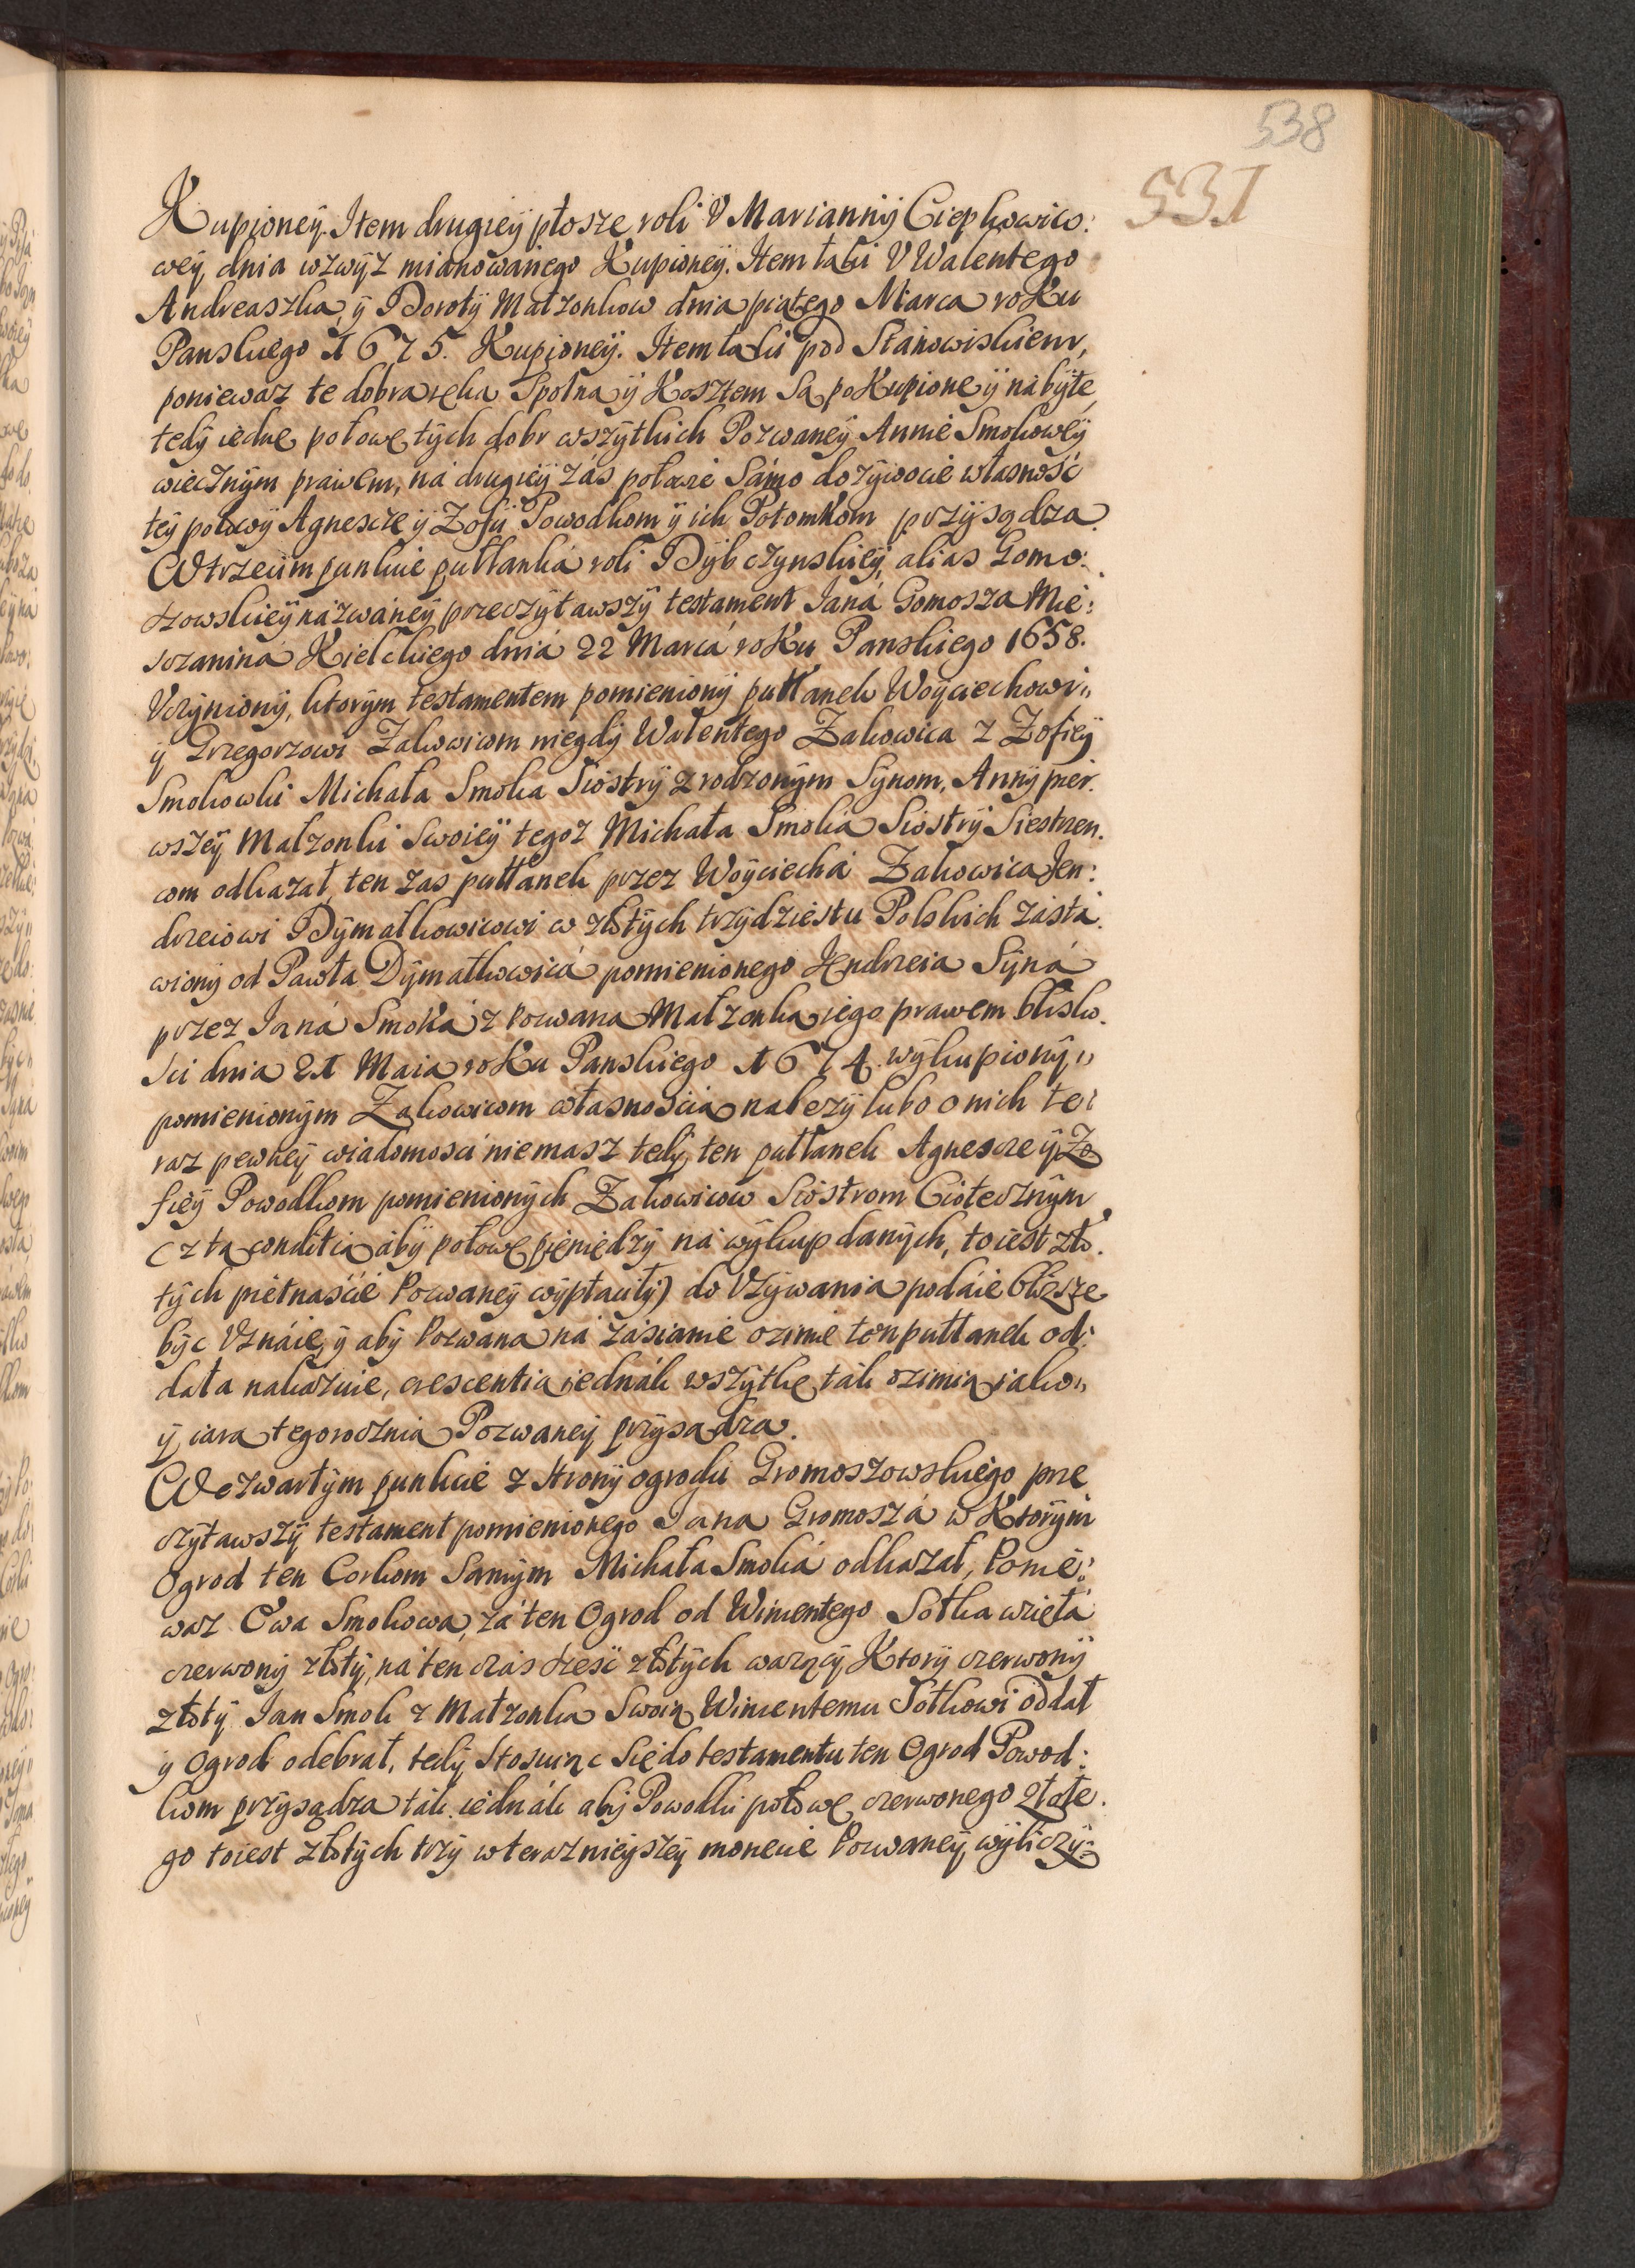 538
531
Kupioney. Item drugiey płosze roli V Marianny Ciepkowico:
wey, dnia wzwyz mianowanego Kupioney. Item łąki V Walentego
Andreaszka, y Doroty Małzonkow dnia piątego Marca roku
Panskiego 1675. Kupioney. Item łąki pod Stanowiskiem,
poniewasz te dobra ręka Spolna y Kosztem Są pokupione y nabyte,
tedy iedne połowe tych dobr wszytkich Pozwaney Annie Smokowey
wiecznym prawem, na drugiey zás połowie Sámo dozywocie własność
tey połowy Agnescze y Zofij Powodkom y ich Potomkom przysądza.
W trzecim punkcie pułłanka roli Dybczynskiey, alias Gomo:
szowskiey názwáney przeczytawszy testament Janá Gomosza Mie:
szczanina Kielckiego dniá 22 Marca roku Panskiego 1658.
Vczyniony, ktorym testamentem pomieniony pułłanek Woyciechowi„
y Grzegorzowi Zakowicom niegdy Walentego Zakowica z Zofiey
Smokowki Michała Smoka Siostry zrodzonym Synom, Anny pier.
wszey Małzonki Swoiey tegoz Michała Smoká Siostry Siestrzen.
com odkazał, ten zas pułłanek przez Woyciecha Zakowica Jen:
drzeiowi Dymatkowicowi w złotych trzydziestu Polskich zásta.
wiony od Pawła Dymatkowicá pomienionego Jendrzeia Syná
przez Janá Smoká z Pozwana Małzonka iego prawem blisko.
sci dnia 21 Maia roku Panskiego 1674. wykupiony„
pomienionym Zakowicom własnoscia nalezy lubo o nich te:
raz pewney wiadomosci niemasz tedy ten pułłanek Agnescze y Zo
fiey Powodkom pomienionych Zakowicow Siostrom Ciotecznym
(z ta conditia aby połowe pieniędzy ná wykup danych, to iest zło.
tych pietnaście Pozwaney wypłaciły) do Vzywania podáie blizsze
być Vznáie, y aby Pozwana ná zásianie ozime ten pułłanek od:
dała nakazuie, crescentia iednák wszytkę ták ozimią iako„
y iara tegoroczniá Pozwaney przysądza.
W czwartym punkcie z strony ogrodu Gromoszowskiego prze
czytawszy testament pomienionego Jana Gromoszá w Ktorym
Ogrod ten Corkom Samym Michała Smoká odkazał, Ponie:
waz Ewa Smokowa, zá ten Ogrod od Wincentego Sotka wzieła
czerwony złoty, ná ten czás szesć złotych warzący Ktory czerwony
złoty Jan Smok z Małzonka Swoią Wincentemu Sotkowi oddał
y Ogrod odebrał, tedy stosuiąc Się do testamentu ten Ogrod Powod:
kom przysądza ták iednák aby Powodki połowę czerwonego złote.
go to iest złotych trzy w teraznieyszey monecie Pozwaney wyliczy: